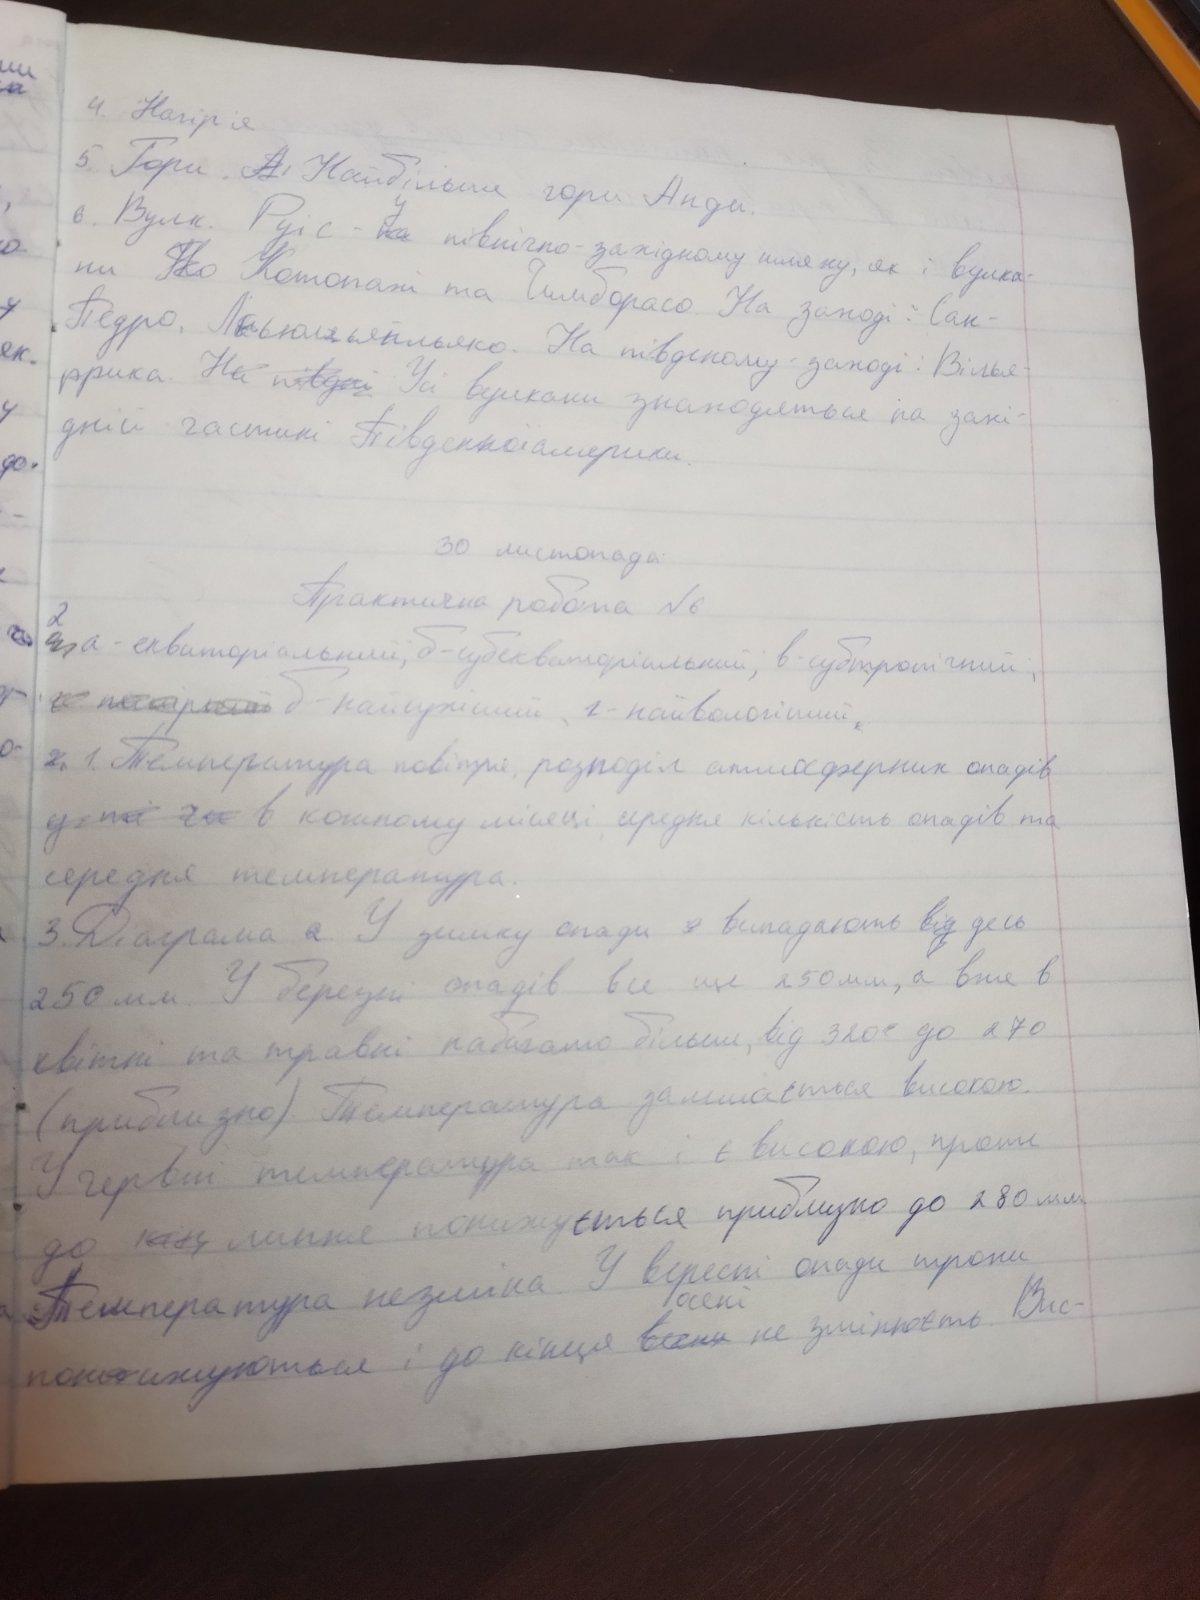 4. Нагір'я
5. Гори. Найбільші гори Анди.
6. Вулк. Руіс - у північно-західному шляху, як і вулка-
ни Котопахі та Чимборасо. На заході: Сан-
Педро, Льюльяйльяко. На південому-заході: Вілья-
ррика. На півдні Усі вулкани знаходяться на захі-
дній частині Південної америки.
30 листопада
Практична робота №6
2. а - екваторіальний, б - субекваторіальний, в - субтропічний;
б - найсухіший, г - найвологіший.
1. Температура повітря, розподіл атмосферних опадів
в кожному місяці, середня кількість опадів та
середня температура.
3. Діаграма а. У зимку опади випадають від десь
250 мм. У березні опадів все ще 250мм, а вже в
квітні та травні набагато більше, від 320 до 270
(приблизно). Температура залишається високою.
У червні температура так і є високою, проти
до липня понижується приблизно до 280 мм
Температура незмінна. У вересні опади трохи
понижуються і до кінця осені не змінюєть. Вис-